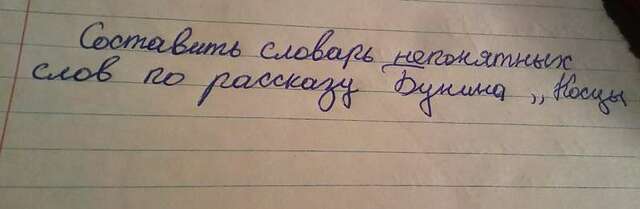 Составить словарь непонятных
слов по рассказу Бунина „Косцы